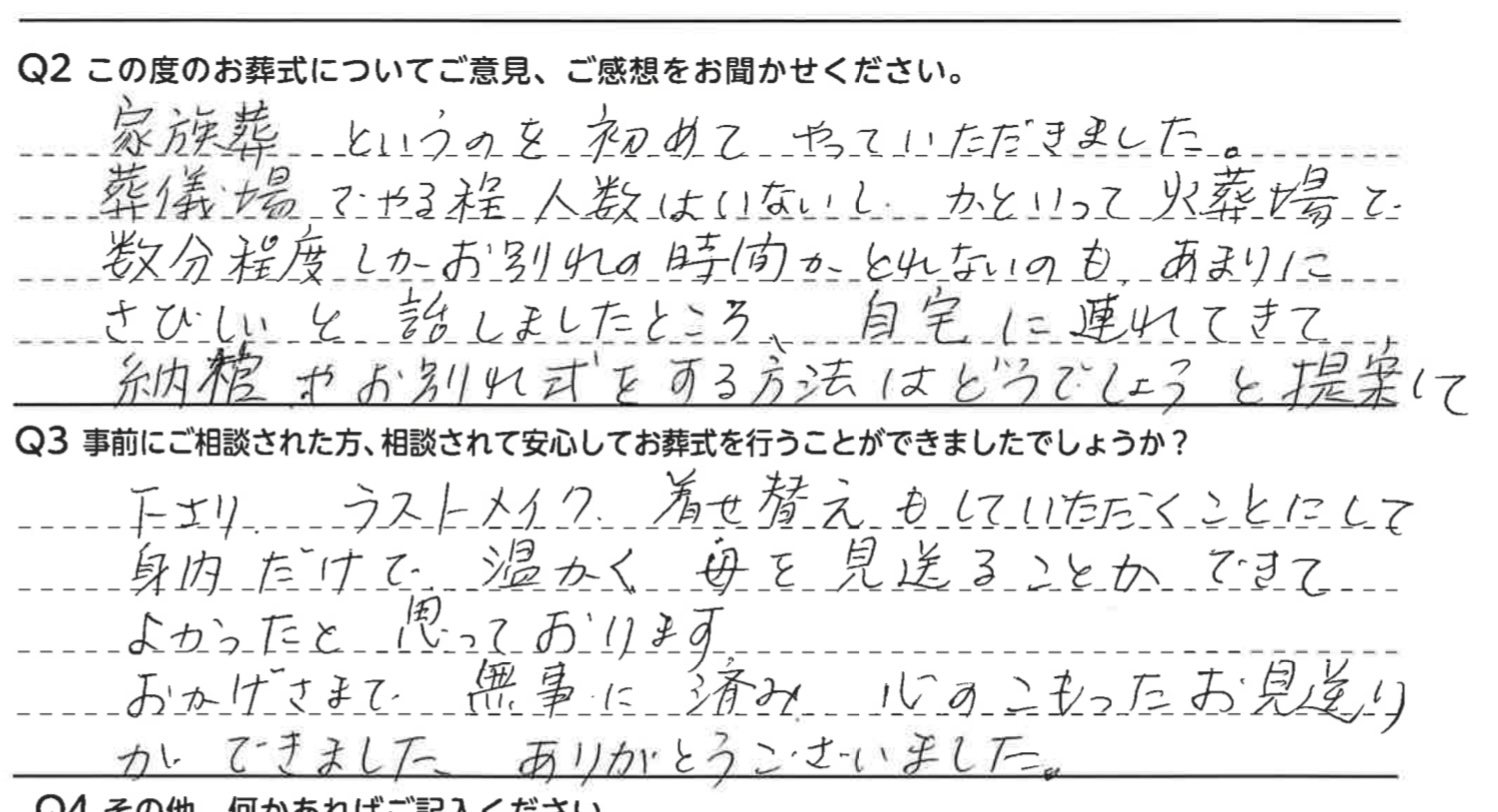 Q2 この度のお葬式についてご意見、ご感想をお聞かせください。
家族葬というのを初めてやっていただきました。
葬儀場でやる程人数はいないし、かといって火葬場で
数分程度しかお別れの時間がとれないのも、あまりに
さびしいと話しましたところ、自宅に連れてきて、
納棺やお別れ式をする方法はどうでしょうと提案して
Q3 事前にご相談された方、相談されて安心してお葬式を行うことができましたでしょうか？
下さり、ラストメイク、着せ替えもしていただくことにして
身内だけで、温かく母を見送ることができて
よかったと思っております。
おかげさまで、無事に済み、心のこもったお見送り
ができました。ありがとうございました。
Q4 その他、何かあればご記入ください